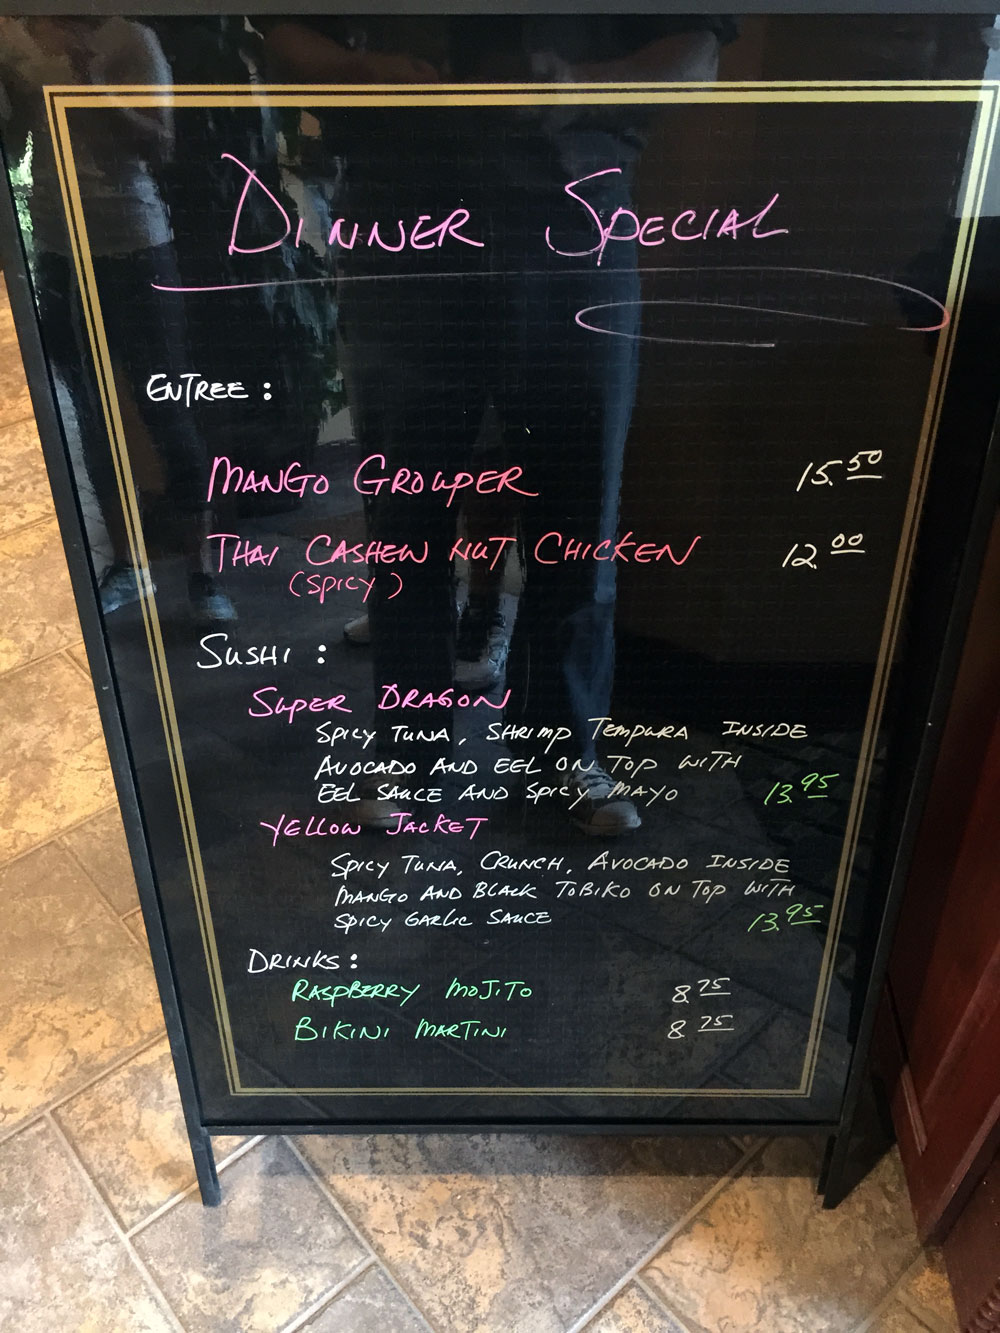 DINNER SPECIAL
ENTREE :
MANGO GROUPER 15.50
THAI CASHEW NUT CHICKEN 12.00
(SPICY)
SUSHI :
SUPER DRAGON
SPICY TUNA, SHRIMP TEMPURA INSIDE
AVOCADO AND EEL ON TOP WITH
EEL SAUCE AND SPICY MAYO 13.95
YELLOW JACKET
SPICY TUNA, CRUNCH, AVOCADO INSIDE
MANGO AND BLACK TOBIKO ON TOP WITH
SPICY GARLIC SAUCE 13.95
DRINKS :
RASPBERRY MOJITO 8.75
BIKINI MARTINI 8.75